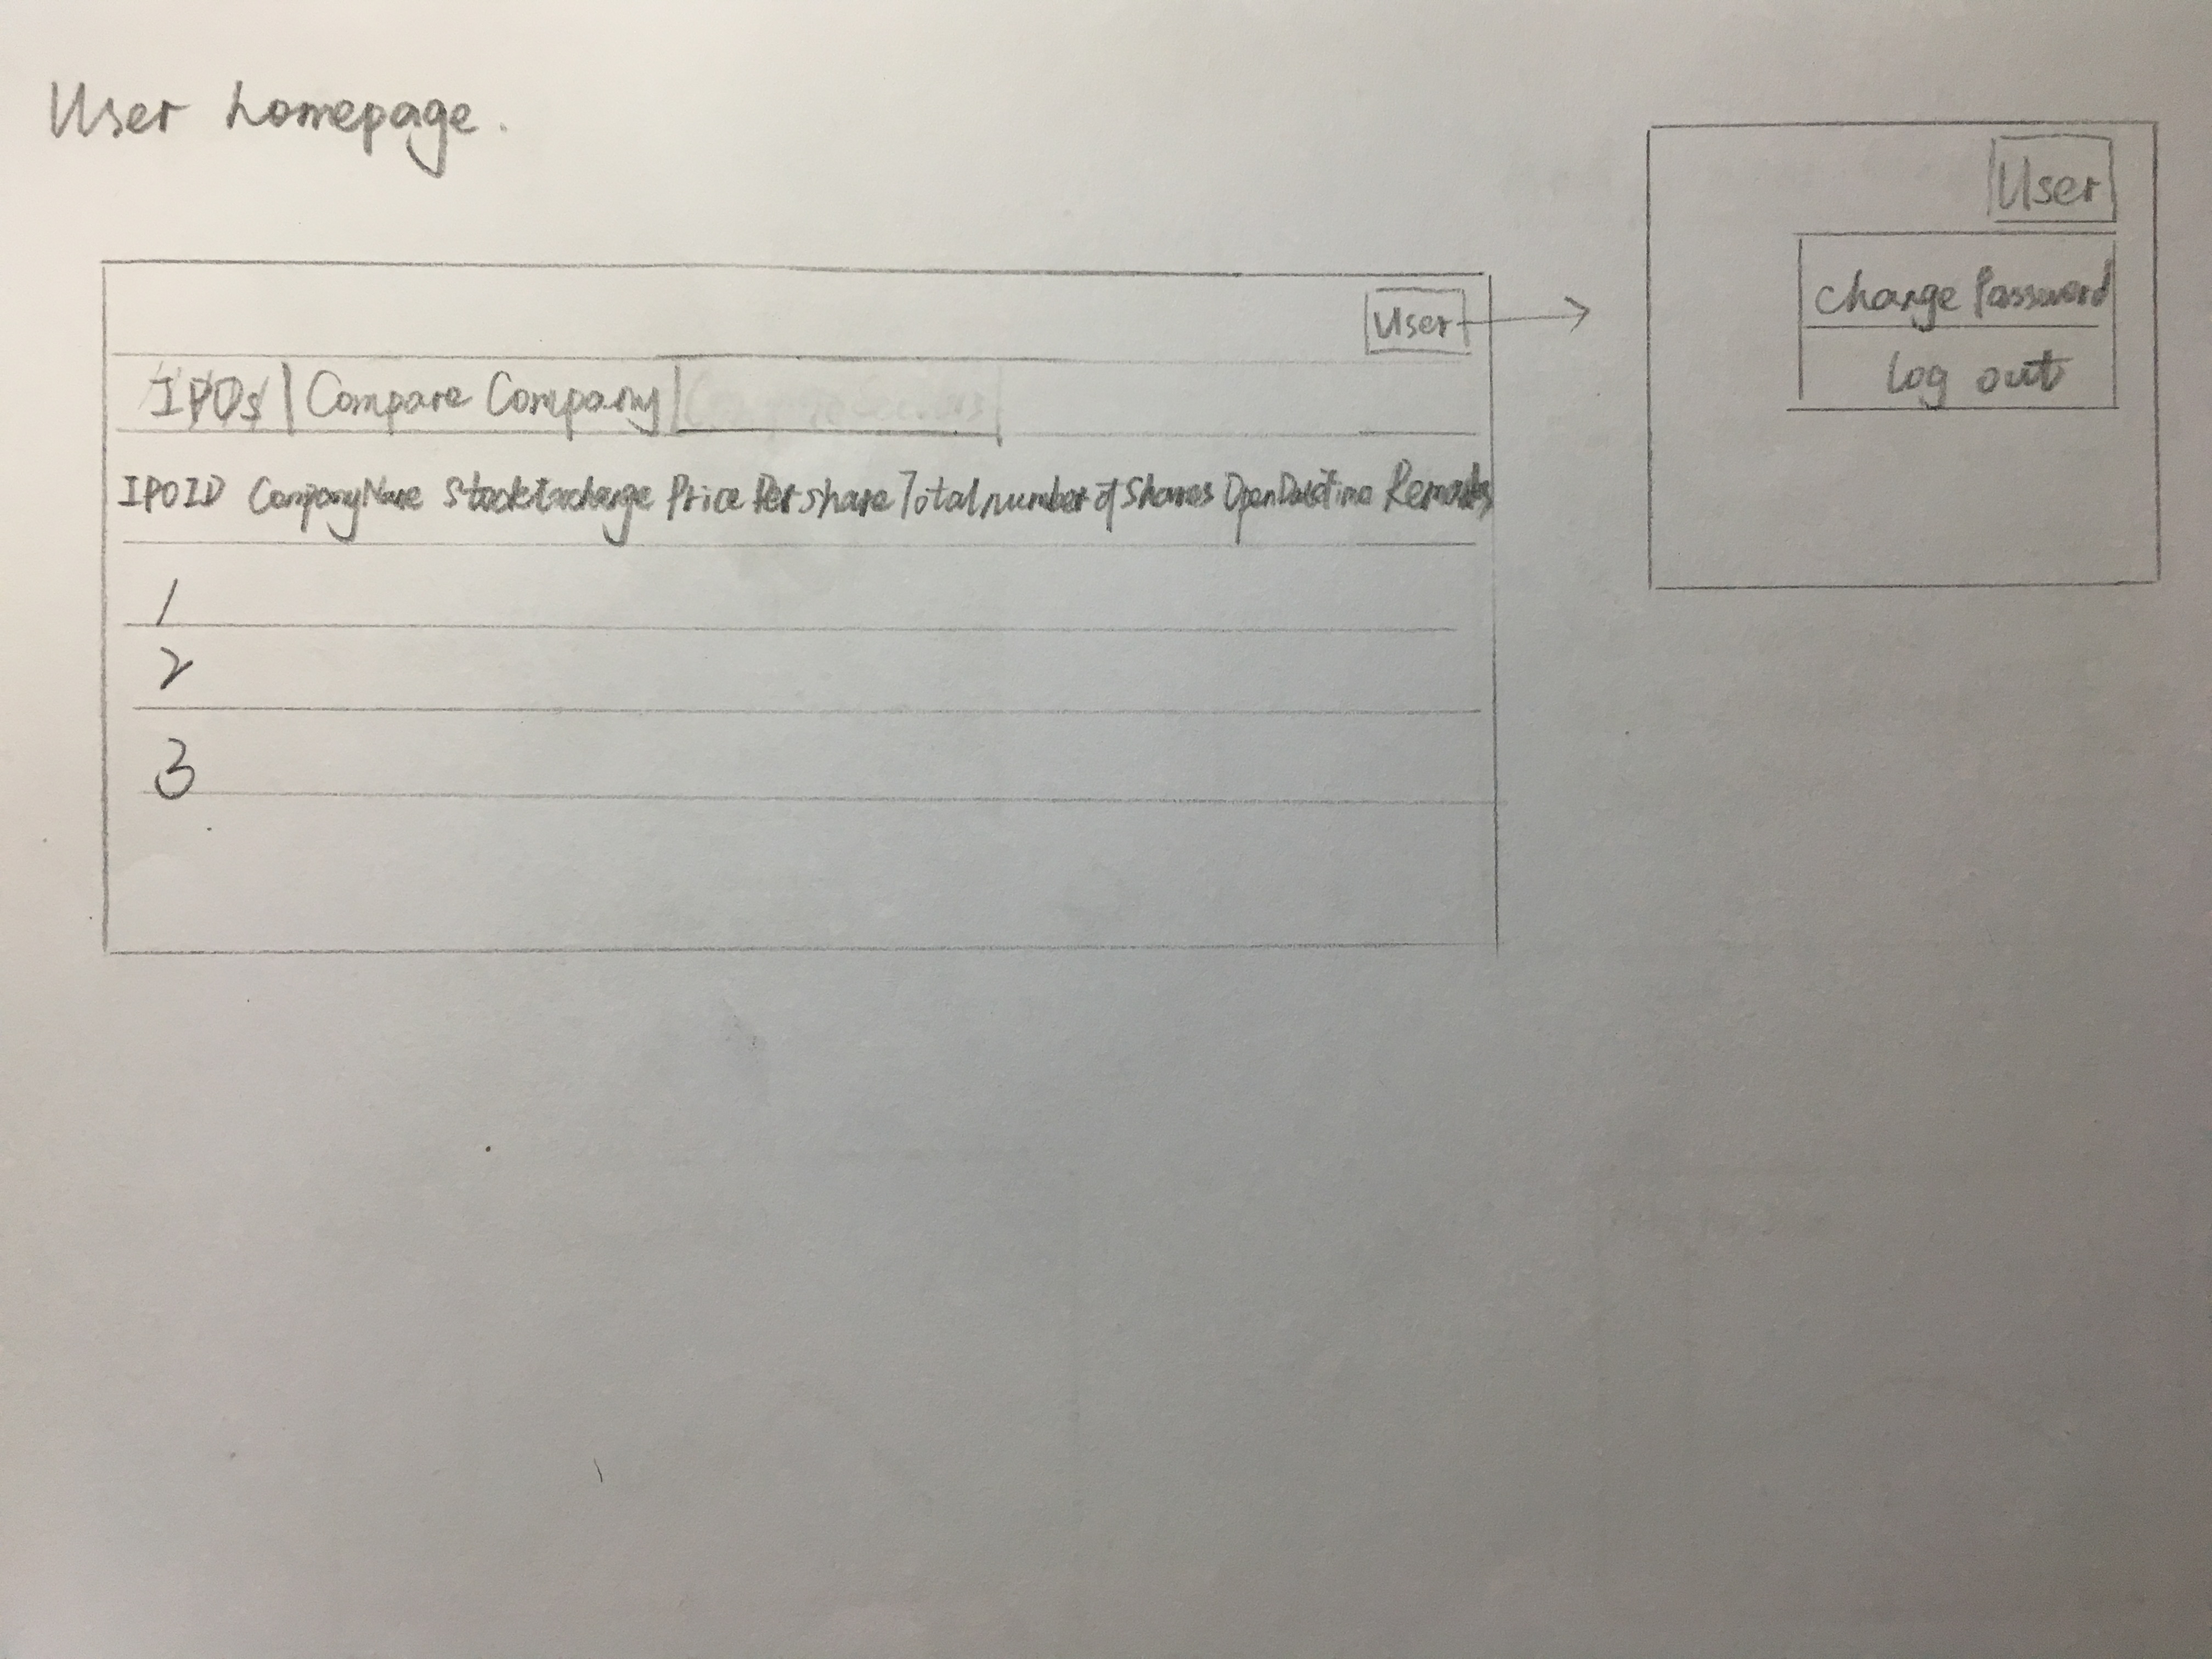 User homepage.
User
IPOs | Compare Company
IPOID CompanyName StockExchange Price Per share Total number of Shares OpenDateTime Remarks
1
2
3
User
Change Password
Log out